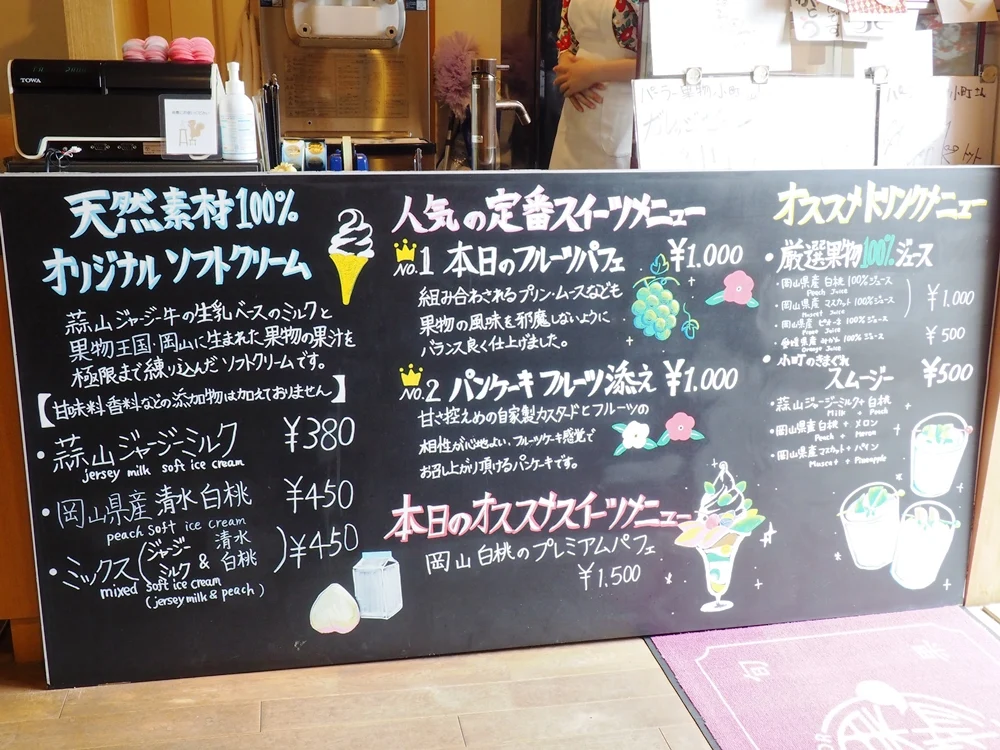 TOWA
天然素材100%
オリジナルソフトクリーム
蒜山ジャージー牛の生乳ベースのミルクと
果物王国・岡山に生まれた果物の果汁を
極限まで練り込んだソフトクリームです。
【甘味料・香料などの添加物は加えておりません】
・蒜山ジャージーミルク ¥380
jersey milk soft ice cream
・岡山県産 清水白桃 ¥450
peach soft ice cream
・ミックス(ジャージーミルク & 清水白桃) ¥450
mixed soft ice cream
(jersey milk & peach)
人気の定番スイーツメニュー
NO.1 本日のフルーツパフェ ¥1.000
組み合わされるプリン・ムースなども
果物の風味を邪魔しないように
バランス良く仕上げました。
NO.2 パンケーキ フルーツ添え ¥1.000
甘さ控えめの自家製カスタードとフルーツの
相性が心地よい、フルーツケーキ感覚で
お召し上がり頂けるパンケーキです。
本日のオススメスイーツメニュー
岡山白桃のプレミアムパフェ
¥1.500
オススメドリンクメニュー
・厳選果物100%ジュース
・岡山県産 白桃 100%ジュース
Peach Juice
・岡山県産 マスカット 100%ジュース
Muscat Juice
¥1.000
・岡山県産 ピオーネ 100%ジュース
Juice
・愛媛県産 みかん 100%ジュース ¥500
Orange Juice
・小町のきまぐれ
スムージー ¥500
・蒜山ジャージーミルク + 白桃
Milk + Peach
・岡山県産白桃 + メロン
Peach + Meron
・岡山県産マスカット + パイン
Muscat + Pineapple